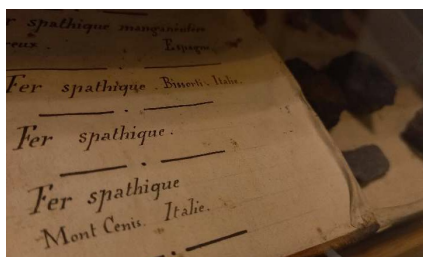 Fer spathique manganésifère
Espagne.
Fer spathique. Bisserti. Italie.
Fer spathique.
Fer spathique
Mont Cenis. Italie.